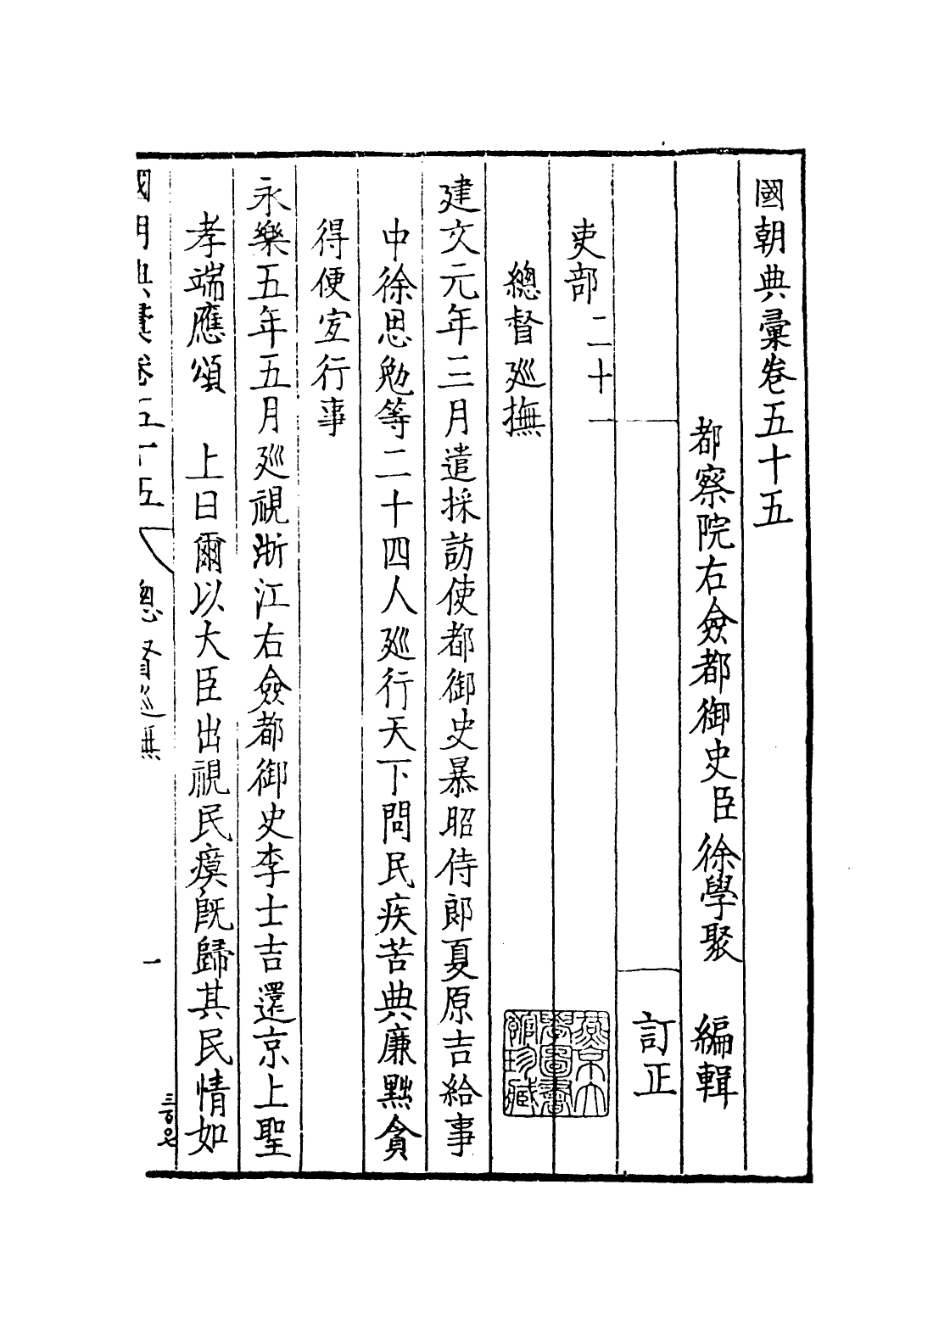 國朝典彙卷五十五
都察院右僉都御史臣徐學聚 編輯
訂正
吏部二十一
總督廵撫
建文元年三月遣採訪使都御史暴昭侍郎夏原吉給事
中徐思勉等二十四人廵行天下問民疾苦典廉黜貪
得便宜行事
永樂五年五月廵視浙江右僉都御史李士吉還京上聖
孝端應頌 上曰爾以大臣出視民瘼旣歸其民情如
國朝典彙卷五十五 總督廵撫 一
燕京大
學圖書
館珍藏